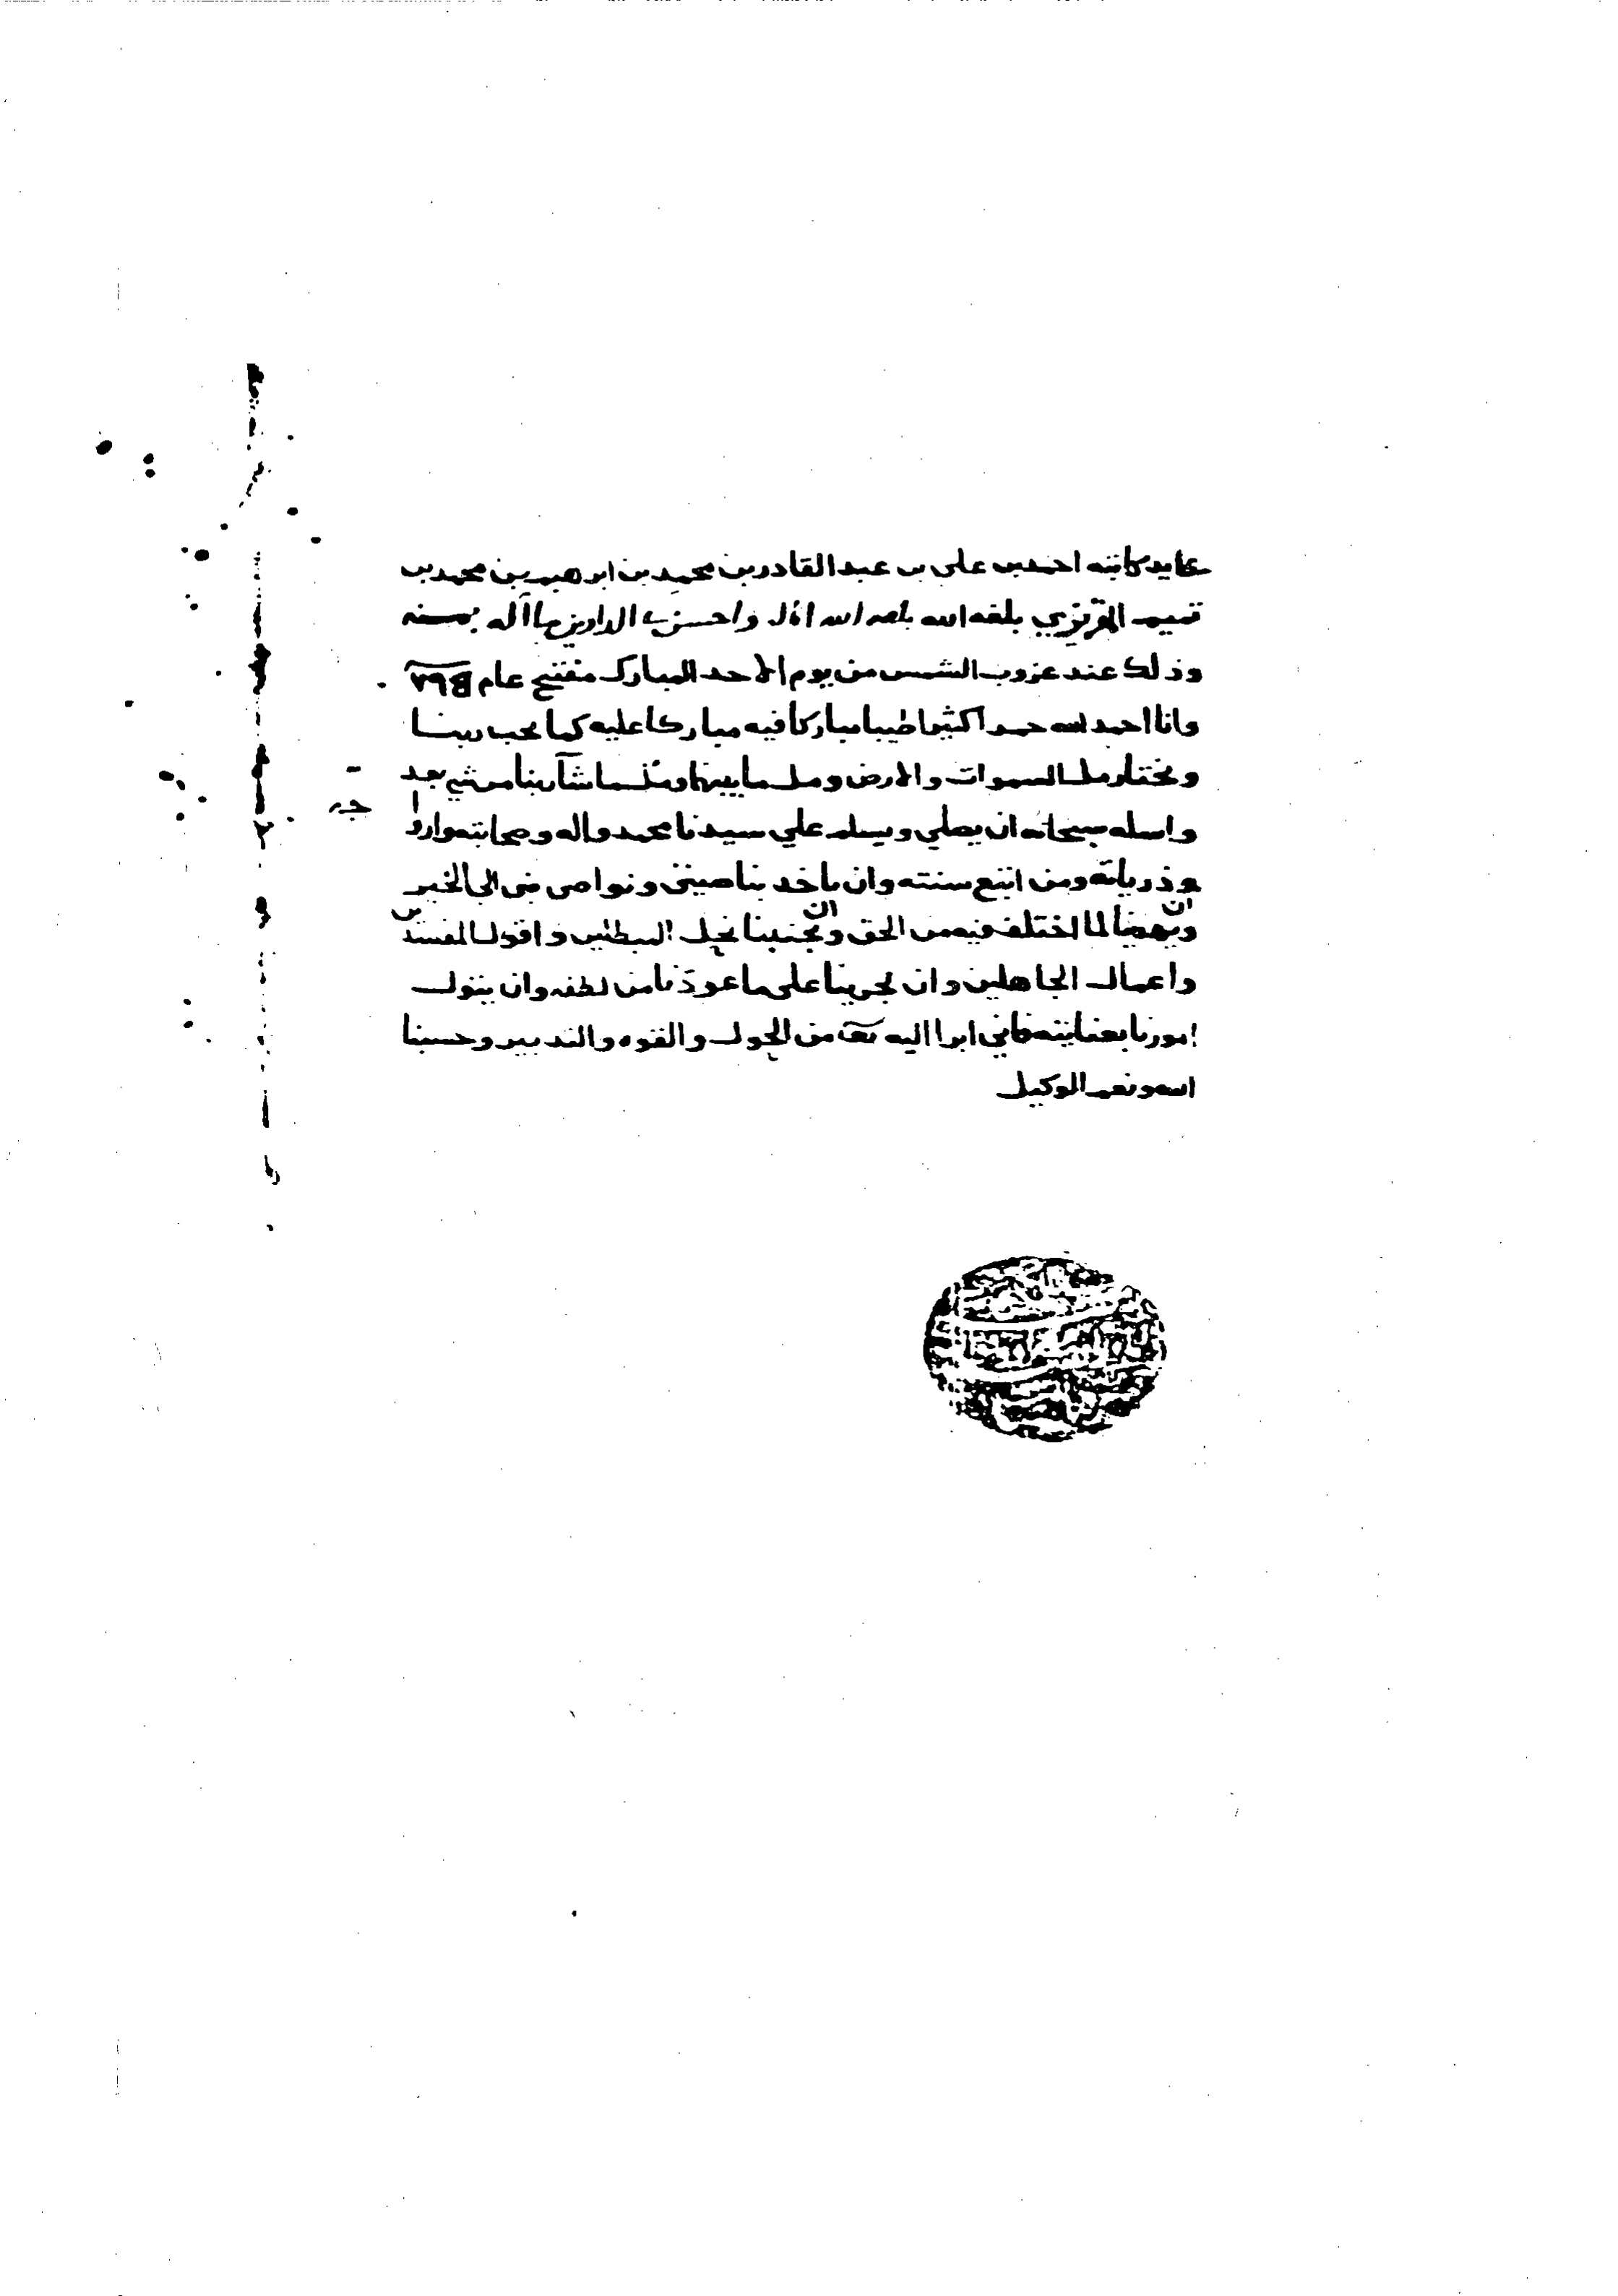 كاتبه احمد بن على بن عبد القادر بن محمد بن ابرهيم بن محمد بن
تميم المقريزي بلغه الله امله واحسن الدارين ماله بمنه
وذلك عند غروب الشمس من يوم الاحد المبارك مفتتح عام
وانا احمد الله حمدا كثيرا طيبا مباركا فيه مباركا عليه كما يحب ربنا
ويختار ملء السموات والارض وملء ما بينهما وملء ما شآ ربنا من شي بعد
واسله سبحانه ان يصلي ويسلم علي سيدنا محمد واله وصحابته وازواجه
وذرياته ومن اتبع سنته وان ياخذ بناصيتي ونواصي الى الخير
وان يهدينا لما اختلف فيه من الحق وان يجنبنا نحل المبطلين واقوال المفسدين
واعمال الجاهلين وان يجرينا على ما عودنا من لطفه وان يتولى
امورنا بعنايته فاني ابرا اليه تعا من الحول والقوه والتدبير وحسبنا
الله ونعم الوكيل